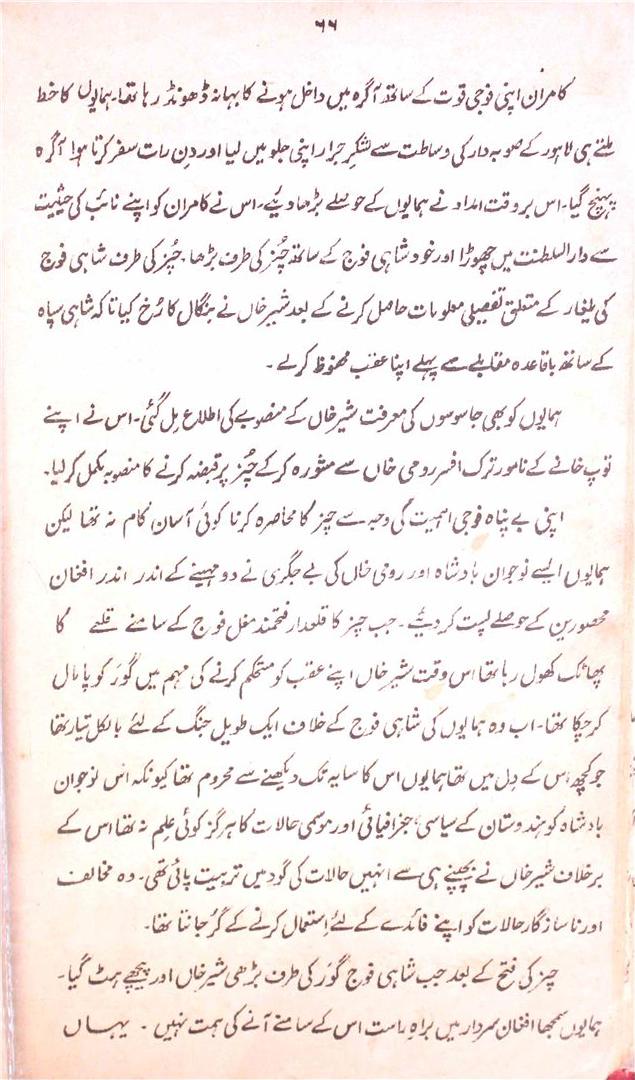 ۶۶
کامران اپنی فوجی قوت کے ساتھ آگرہ میں داخل ہونے کا بہانہ ڈھونڈ رہا تھا۔ ہمایوں کا خط
ملتے ہی لاہور کے صوبہ دار کی وساطت سے لشکرِ جرار اپنی جلو میں لیا اور دن رات سفر کرتا ہوا آگرہ
پہنچ گیا۔ اس بروقت امداد نے ہمایوں کے حوصلے بڑھا دیئے۔ اس نے کامران کو اپنے نائب کی حیثیت
سے دارالسلطنت میں چھوڑا اور خود شاہی فوج کے ساتھ چُنز کی طرف بڑھا۔ چُنز کی طرف شاہی فوج
کی یلغار کے متعلق تفصیلی معلومات حاصل کرنے کے بعد شیر خاں نے بنگال کا رُخ کیا تاکہ شاہی سپاہ
کے ساتھ باقاعدہ مقابلے سے پہلے اپنا عقب محفوظ کرلے ۔
ہمایوں کو بھی جاسوسوں کی معرفت شیر خاں کے منصوبے کی اطلاع مِل گئی۔ اس نے اپنے
توپ خانے کے نامور ترک افسر رومی خاں سے مشورہ کرکے چُنز پر قبضہ کرنے کا منصوبہ مکمل کرلیا۔
اپنی بے پناہ فوجی اہمیت کی وجہ سے چنز کا محاصرہ کرنا کوئی آسان کام نہ تھا لیکن
ہمایوں ایسے نوجوان بادشاہ اور رومی خاں کی بے جگری نے دو مہینے کے اندر اندر افغان
محصورین کے حوصلے پست کر دیئے۔ جب چنز کا قلعدار فتحمند مغل فوج کے سامنے قلعے کا
پھاٹک کھول رہا تھا اس وقت شیر خاں اپنے عقب کو مستحکم کرنے کی مہم میں گوَر کو پامال
کر چکا تھا۔ اب وہ ہمایوں کی شاہی فوج کے خلاف ایک طویل جنگ کے لئے بالکل تیار تھا
جو کچھ اس کے دِل میں تھا ہمایوں اس کا سایہ تک دیکھنے سے محروم تھا کیونکہ اس نوجوان
بادشاہ کو ہندوستان کے سیاسی، جغرافیائی اور موسمی حالات کا ہرگز کوئی علم نہ تھا اس کے
برخلاف شیر خاں نے بچپنے ہی سے انہیں حالات کی گود میں تربیت پائی تھی۔ وہ مخالف
اور ناسازگار حالات کو اپنے فائدے کے لئے اِستعمال کرنے کے گُر جانتا تھا۔
چنز کی فتح کے بعد جب شاہی فوج گوَر کی طرف بڑھی شیر خاں اور پیچھے ہٹ گیا۔
ہمایوں سمجھا افغان سردار میں براہِ راست اس کے سامنے آنے کی ہمت نہیں ۔ یہاں